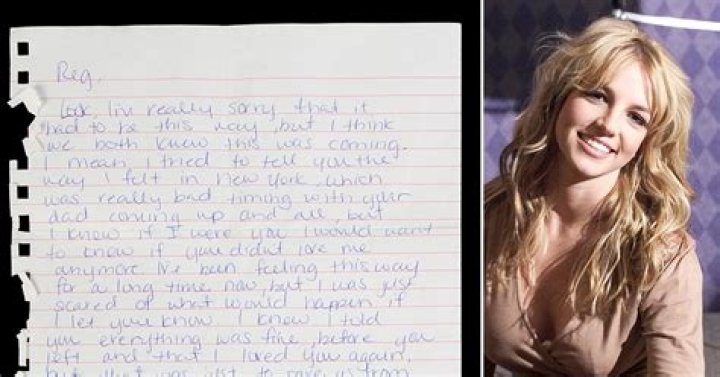 Reg,
Look, I'm really sorry that it
had to be this way, but I think
we both knew this was coming.
I mean I tried to tell you the
way I felt in New York, which
was really bad timing with your
dad coming up and all, but
I know if I were you I would want
to know if you didn't love me
anymore. I've been feeling this way
for a long time now, but I was just
scared of what would happen if
I let you know. I know I told
you everything was fine, before you
left and that I loved you again,
but that was just to save us from